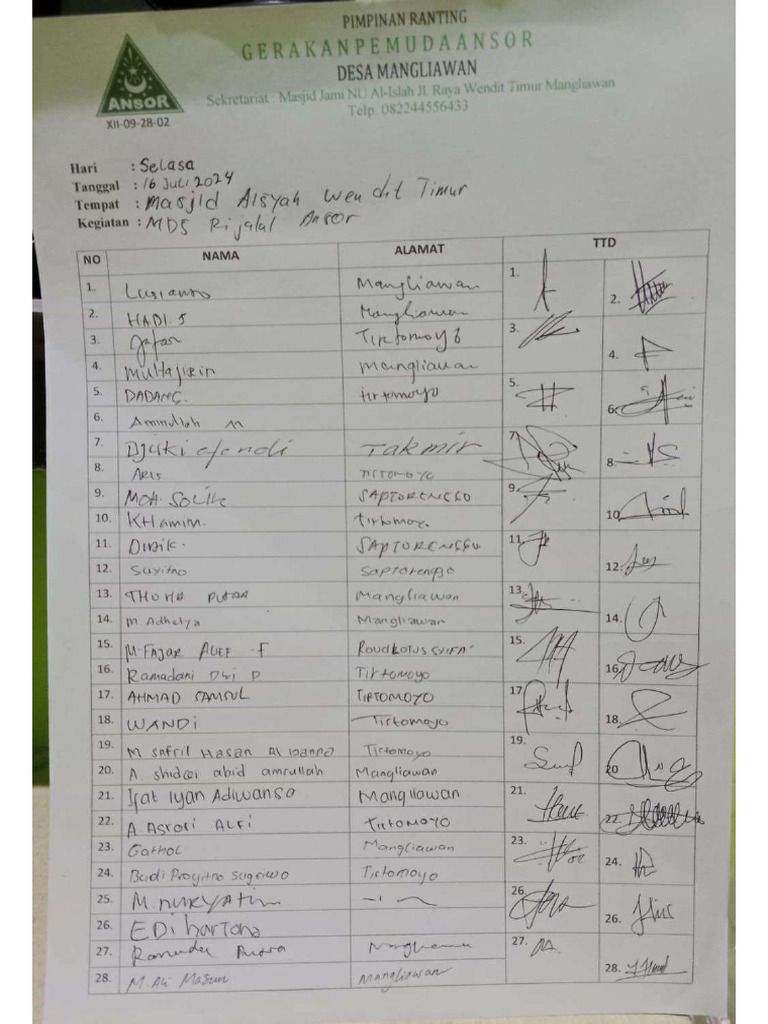 PIMPINAN RANTING
GERAKAN PEMUDA ANSOR
DESA MANGLIAWAN
Sekretariat : Masjid Jami NU Al-Islah Jl. Raya Wendit Timur Mangliawan
Telp. 082244556433
ANSOR
XII-09-28-02
Hari : Selasa
Tanggal : 16 Juli 2024
Tempat : Masjid Aisyah Wendit Timur
Kegiatan : MDS Rijalul Ansor
NO NAMA ALAMAT TTD
1. Mangliawan 1.
2. HADI.S Mangliawan 2.
3. Jafar Tirtomoyo 3.
4. Muhajirin Mangliawan 4.
5. DADANG. tirtomoyo 5.
6. Aminullah M 6.
7. Djuki efendi Takmir 7.
8. Aris Tirtomoyo 8.
9. MOH. SOLIK SAPTORENGGO 9.
10. KHamim. tirtomoyo. 10.
11. SAPTORENGGO 11.
12. Suyitno Saptorenggo 12.
13. THOHA PUTRA Mangliawan 13.
14. M Adhelya Mangliawan 14.
15. M. FAJAR ALIEF . F 15.
16. Ramadani Dwi P Tirtomoyo 16.
17. AHMAD SAMSUL TIRTOMOYO 17.
18. WANDI Tirtomoyo 18.
19. M Safril Hasan Tirtomoyo 19.
20. A. shidqi abid amrullah Mangliawan 20
21. Adiwansa Mangliawan 21.
22. A Asrori ALFI Tirtomoyo 22.
23. Gathol Mangliawan 23.
24. Budi Prayitno Tirtomoyo 24.
25. M. NURYATIN 26
26. EDI hartono 26.
27. Putra 27.
28. M. Ali Mangliawan 28.